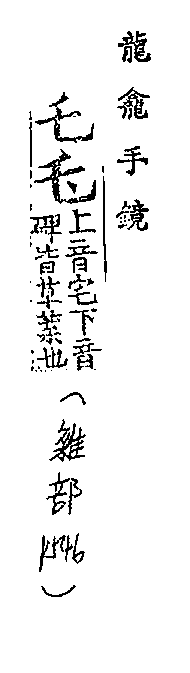 龍龕手鏡
乇
上音宅下音
碑皆草葉也
(雜部 K546)